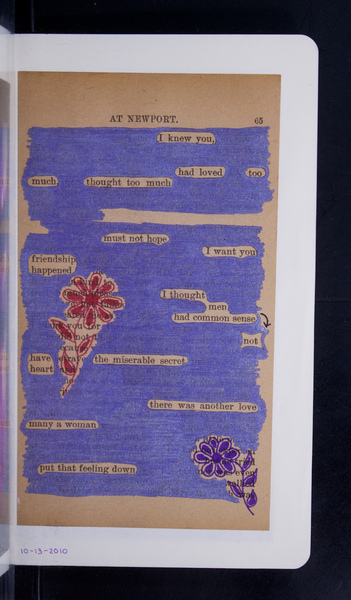 AT NEWPORT. 65
I knew you,
had loved too
much, thought too much
must not hope
I want you
friendship
happened
I thought
men
had common sense
you for
not
have the miserable secret
heart
there was another love
many a woman
put that feeling down
10-13-2010